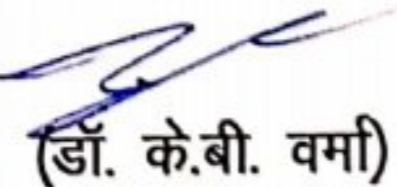 (डॉ. के.बी. वर्मा)